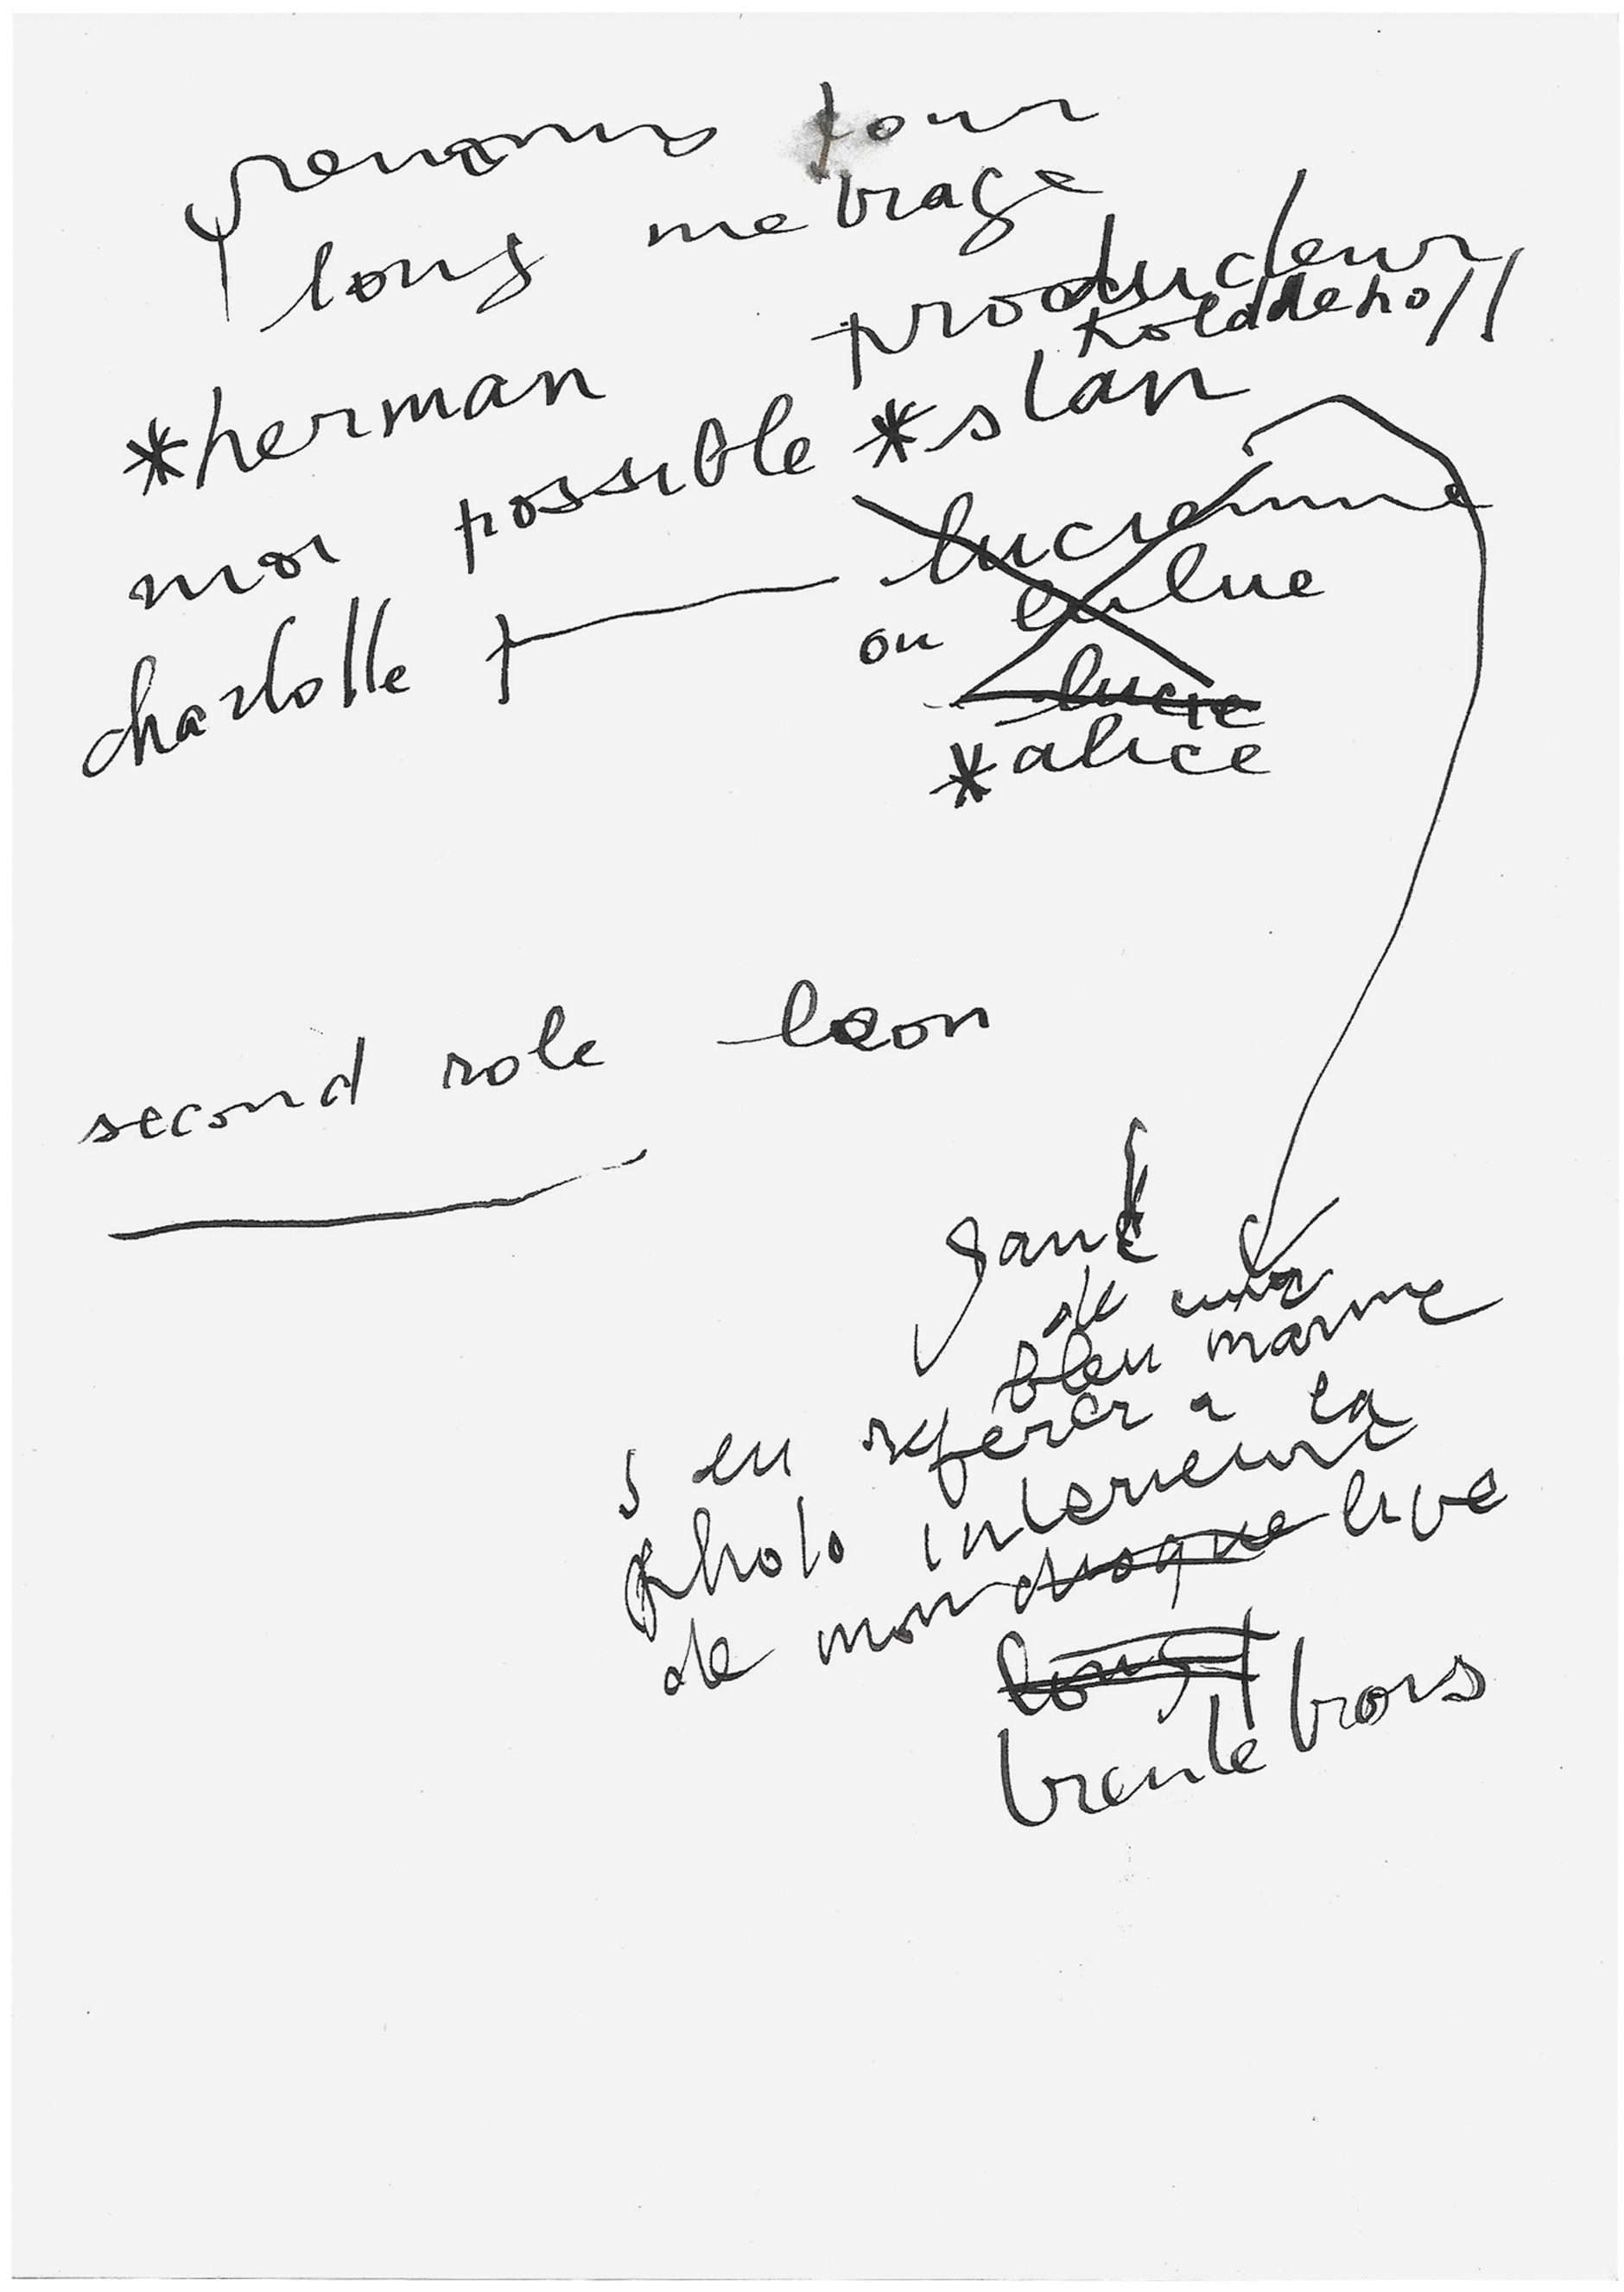 prenoms pour
long metrage
producteur
koldehoff
*herman
moi possible *stan
charlotte lucienne
ou
lucie
*alice
second role leon
gant
de cuir
bleu marine
s en referer a la
photo interieure
de mon disque live
long
trente trois